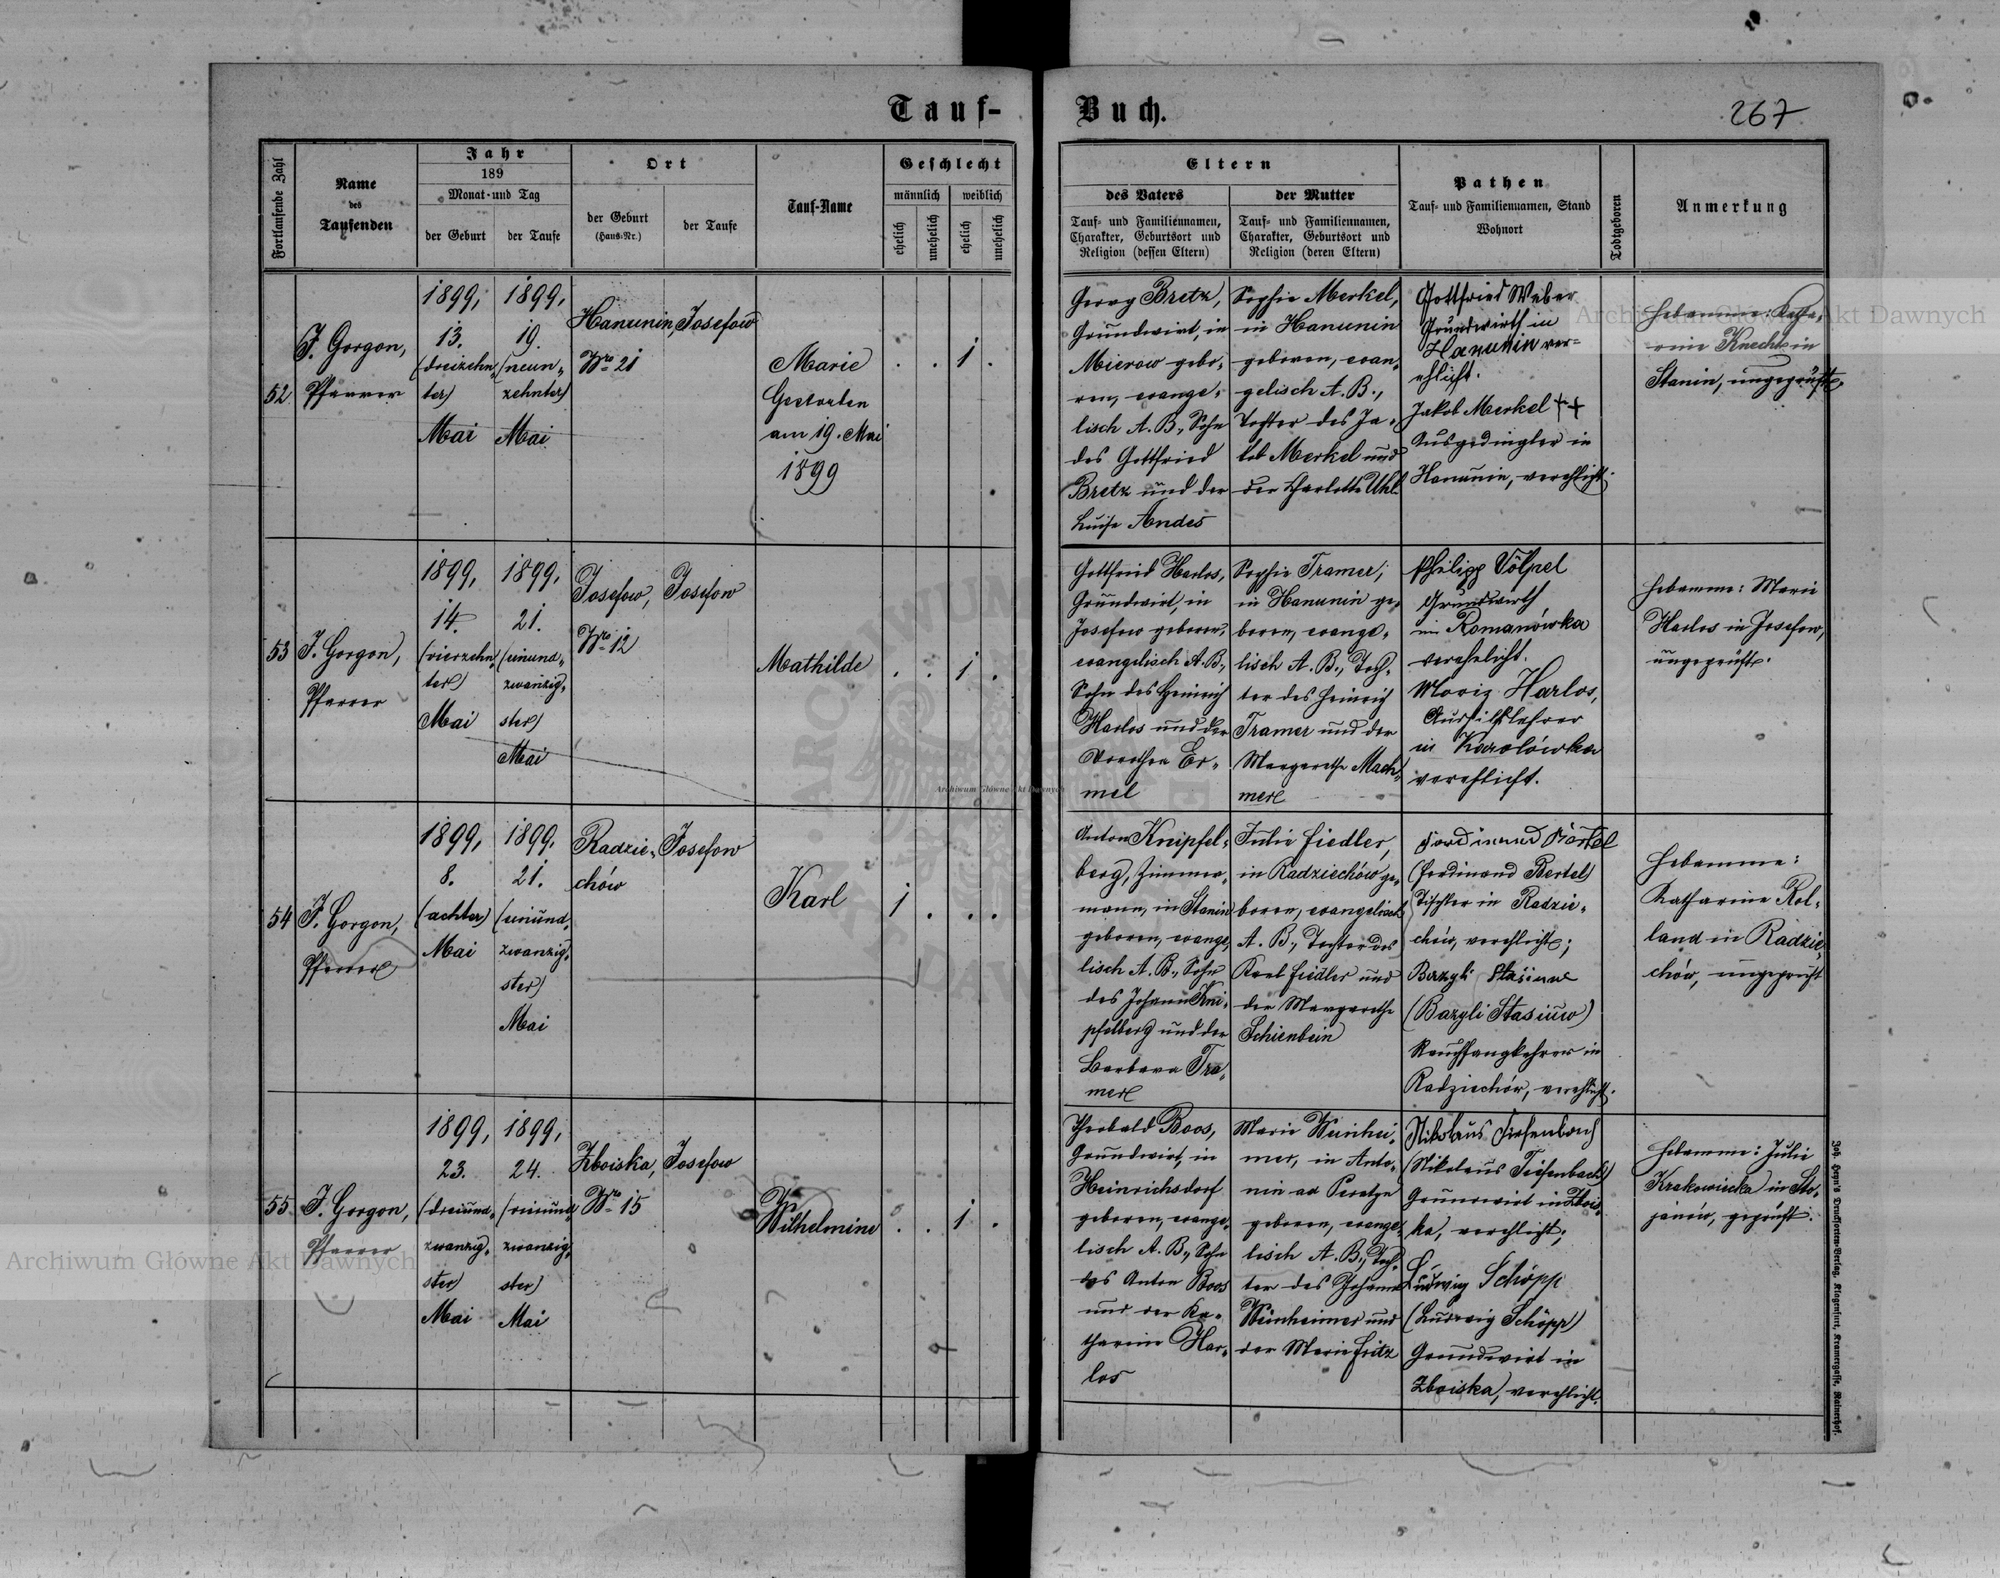 Tauf-
Buch.
267
Fortlaufende Zahl
Name
des
Taufenden
Jahr
189
Monat- und Tag
der Geburt
der Taufe
Ort
der Geburt
(Haus-Nr.)
der Taufe
Tauf-Name
Geschlecht
männlich
weiblich
ehelich
unehelich
ehelich
unehelich
Eltern
des Vaters
Tauf- und Familiennamen,
Charakter, Geburtsort und
Religion (dessen Eltern)
der Mutter
Tauf- und Familiennamen,
Charakter, Geburtsort und
Religion (deren Eltern)
Pathen
Tauf- und Familiennamen, Stand
Wohnort
Todtgeboren
Anmerkung
52
J. Gorgon,
Pfarrer
1899,
13.
(dreizehn-
ter)
Mai
1899,
19.
(neun-
zehnter)
Mai
Hanunin,
No 21
Josefow
Marie
Gestorben
am 19. Mai
1899
. . 1 .
Georg Bretz,
Grundwirt, in
Mierow gebo-
ren, evange-
lisch A. B., Sohn
des Gottfried
Bretz und der
Luise Andes
Sophie Merkel,
in Hanunin
geboren, evan-
gelisch A. B.,
Tochter des Ja-
kob Merkel und
der Charlotte Uhl
Gottfried Weber
Grundwirth in
Hanunin ver-
ehlicht.
Jakob Merkel +++
Ausgedingler in
Hanunin, verehlicht.
Hebamme: Katha-
rine Knecht in
Stanin, ungeprüft.
53
J. Gorgon,
Pfarrer
1899,
14.
(vierzehn-
ter)
Mai
1899,
21.
(einund-
zwanzig-
ster)
Mai
Josefow,
No 12
Josefow
Mathilde
. . 1 .
Gottfried Harlos,
Grundwirt, in
Josefow geboren,
evangelisch A. B.,
Sohn des Heinrich
Harlos und der
Dorothea Er-
mel
Sophie Tramer,
in Hanunin ge-
boren, evange-
lisch A. B., Toch-
ter des Heinrich
Tramer und der
Margarethe Mach-
mer
Philipp Völpel
Grundwirth
in Romanówka
verehelicht.
Moriz Harlos,
Aushilfslehrer
in Karolówka
verehlicht.
Hebamme: Marie
Harlos in Josefow,
ungeprüft.
54
J. Gorgon,
Pfarrer
1899,
8.
(achter)
Mai
1899,
21.
(einund-
zwanzig-
ster)
Mai
Radzie-
chów
Josefow
Karl
1 . . .
Anton Knipfel-
berg, Zimmer-
mann, in Stanin
geboren, evange-
lisch A. B., Sohn
des Johann Kni-
pfelberg und der
Barbara Tra-
mer
Julie Fiedler,
in Radziechów ge-
boren, evangelisch
A. B., Tochter des
Karl Fiedler und
der Margarethe
Schienbein
Ferdinand Bertel
(Ferdinand Bertel)
Tischler in Radzie-
chów, verehlicht;
Bazyli Stasiuw
(Bazyli Stasiuw)
Rauchfangkehrer in
Radziechów, verehlicht.
Hebamme:
Katharine Rol-
land in Radzie-
chów, ungeprüft
55
J. Gorgon,
Pfarrer
1899,
23.
(dreiund-
zwanzig-
ster)
Mai
1899,
24.
(vierund-
zwanzig-
ster)
Mai
Zboiska,
No 15
Josefow
Wilhelmine
. . 1 .
Theobald Boos,
Grundwirt, in
Heinrichsdorf
geboren, evange-
lisch A. B., Sohn
des Anton Boos
und der Ka-
tharine Har-
los
Marie Weinhei-
mer, in Anto-
nin ad Peratyn
geboren, evange-
lisch A. B., Toch-
ter des Johann
Weinheimer und
der Marie Fritz
Nikolaus Tiefenbach
(Nikolaus Tiefenbach)
Grundwirt in Zbois-
ka, verehlicht;
Ludwig Schöpp
(Ludwig Schöpp)
Grundwirt in
Zboiska, verehlicht.
Hebamme: Julie
Krakowiecka in Sto-
janów, geprüft.
Joh. Heyn's Drucksorten-Verlag, Klagenfurt, Kramergasse, Rainerhof.
Archiwum Główne Akt Dawnych
Archiwum Główne Akt Dawnych
Archiwum Główne Akt Dawnych